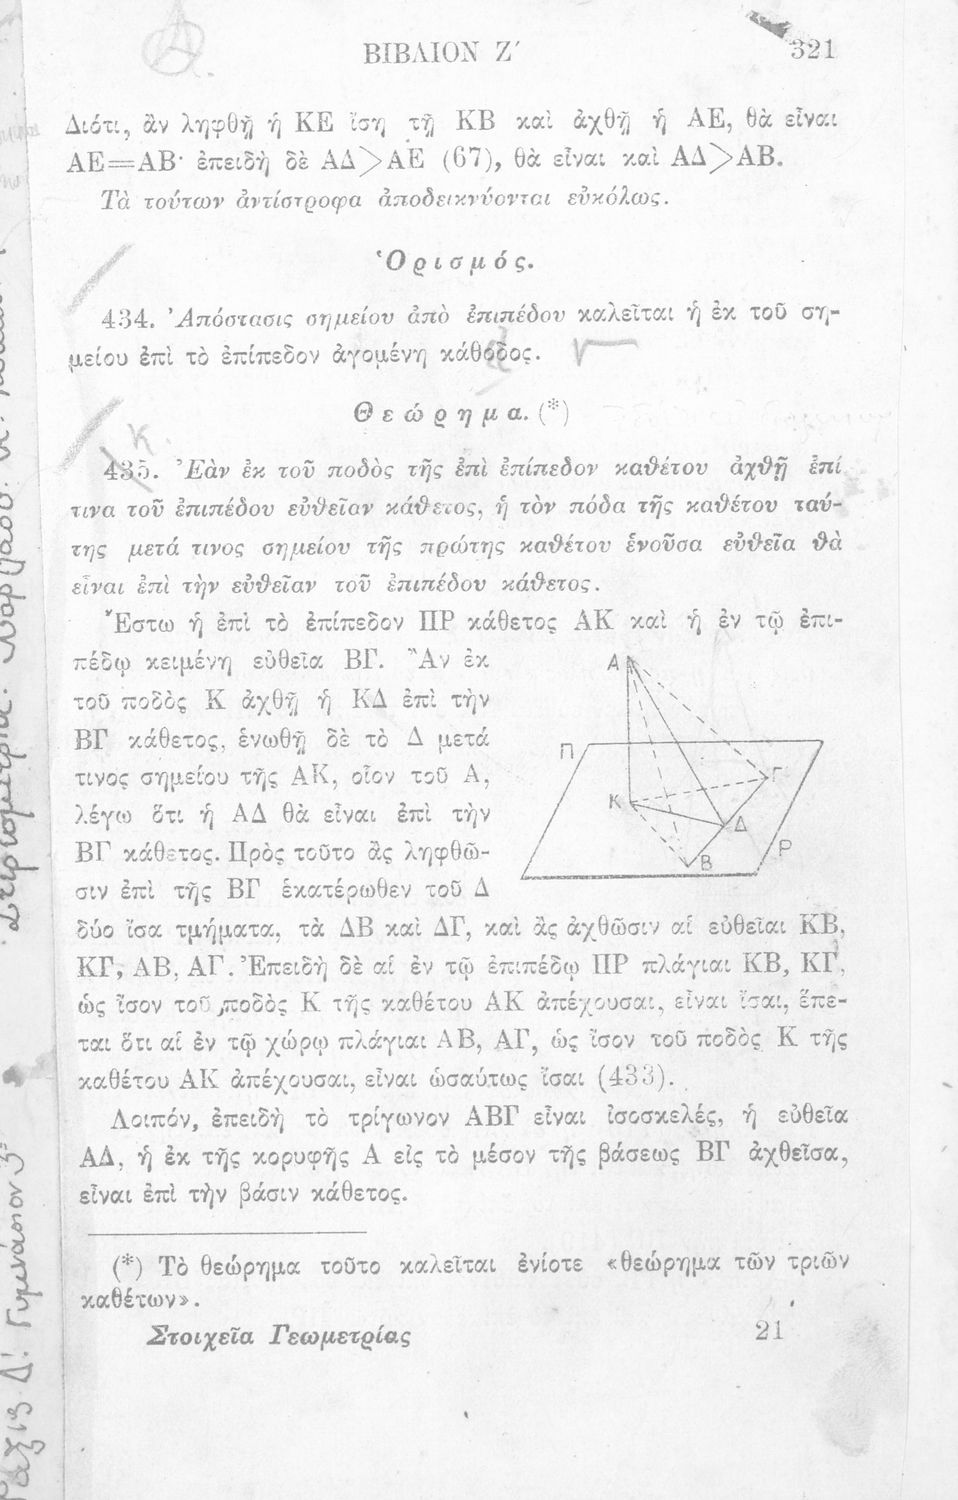 ΒΙΒΛΙΟΝ Ζ΄ 321
Διότι, ἂν ληφθῇ ἡ ΚΕ ἴση τῇ ΚΒ καὶ ἀχθῇ ἡ ΑΕ, θὰ εἶναι
ΑΕ=ΑΒ· ἐπειδὴ δὲ ΑΔ>ΑΕ (67), θὰ εἶναι καὶ ΑΔ>ΑΒ.
Τὰ τούτων ἀντίστροφα ἀποδεικνύονται εὐκόλως.
Ὁρισμός.
434. Ἀπόστασις σημείου ἀπὸ ἐπιπέδου καλεῖται ἡ ἐκ τοῦ ση-
μείου ἐπὶ τὸ ἐπίπεδον ἀγομένη κάθοδος.
Θεώρημα. (*)
Κ
435. Ἐὰν ἐκ τοῦ ποδὸς τῆς ἐπὶ ἐπίπεδον καθέτου ἀχθῇ ἐπί
τινα τοῦ ἐπιπέδου εὐθεῖαν κάθετος, ἡ τὸν πόδα τῆς καθέτου ταύ-
της μετά τινος σημείου τῆς πρώτης καθέτου ἑνοῦσα εὐθεῖα θὰ
εἶναι ἐπὶ τὴν εὐθεῖαν τοῦ ἐπιπέδου κάθετος.
Ἔστω ἡ ἐπὶ τὸ ἐπίπεδον ΠΡ κάθετος ΑΚ καὶ ἡ ἐν τῷ ἐπι-
πέδῳ κειμένη εὐθεῖα ΒΓ. Ἂν ἐκ
τοῦ ποδὸς Κ ἀχθῇ ἡ ΚΔ ἐπὶ τὴν
ΒΓ κάθετος, ἑνωθῇ δὲ τὸ Δ μετά
τινος σημείου τῆς ΑΚ, οἷον τοῦ Α,
λέγω ὅτι ἡ ΑΔ θὰ εἶναι ἐπὶ τὴν
ΒΓ κάθετος. Πρὸς τοῦτο ἂς ληφθῶ-
σιν ἐπὶ τῆς ΒΓ ἑκατέρωθεν τοῦ Δ
Α
Π
Γ
Κ
Δ
Ρ
Β
δύο ἴσα τμήματα, τὰ ΔΒ καὶ ΔΓ, καὶ ἂς ἀχθῶσιν αἱ εὐθεῖαι ΚΒ,
ΚΓ, ΑΒ, ΑΓ. Ἐπειδὴ δὲ αἱ ἐν τῷ ἐπιπέδῳ ΠΡ πλάγιαι ΚΒ, ΚΓ,
ὡς ἴσον τοῦ ποδὸς Κ τῆς καθέτου ΑΚ ἀπέχουσαι, εἶναι ἴσαι, ἕπε-
ται ὅτι αἱ ἐν τῷ χώρῳ πλάγιαι ΑΒ, ΑΓ, ὡς ἴσον τοῦ ποδὸς Κ τῆς
καθέτου ΑΚ ἀπέχουσαι, εἶναι ὡσαύτως ἴσαι (433).
Λοιπόν, ἐπειδὴ τὸ τρίγωνον ΑΒΓ εἶναι ἰσοσκελές, ἡ εὐθεῖα
ΑΔ, ἡ ἐκ τῆς κορυφῆς Α εἰς τὸ μέσον τῆς βάσεως ΒΓ ἀχθεῖσα,
εἶναι ἐπὶ τὴν βάσιν κάθετος.
(*) Τὸ θεώρημα τοῦτο καλεῖται ἐνίοτε «θεώρημα τῶν τριῶν
καθέτων».
Στοιχεῖα Γεωμετρίας 21
Τάξις Δ΄. Γυμνάσιον